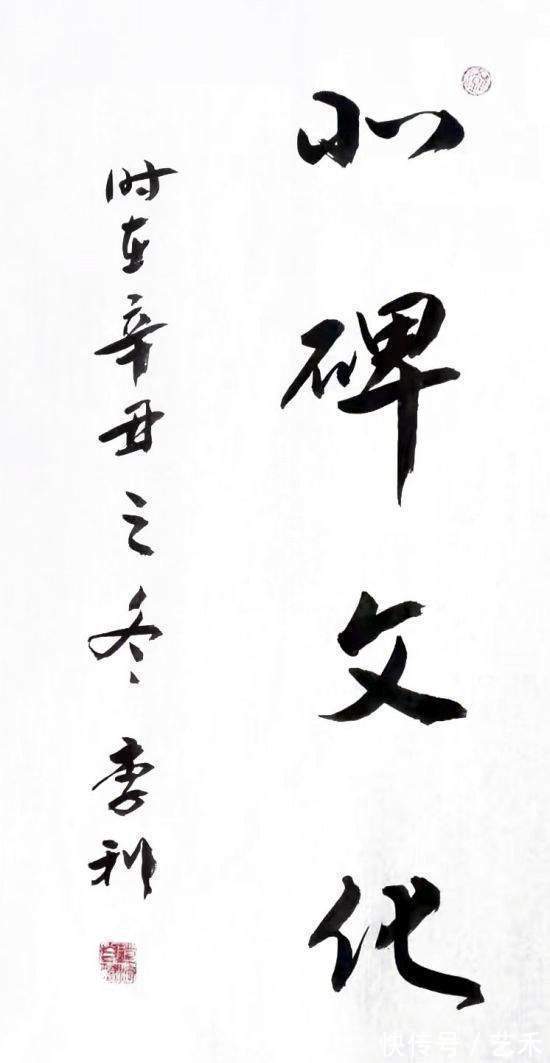 小碑文化
时在辛丑之冬 李利
快传号/艺禾